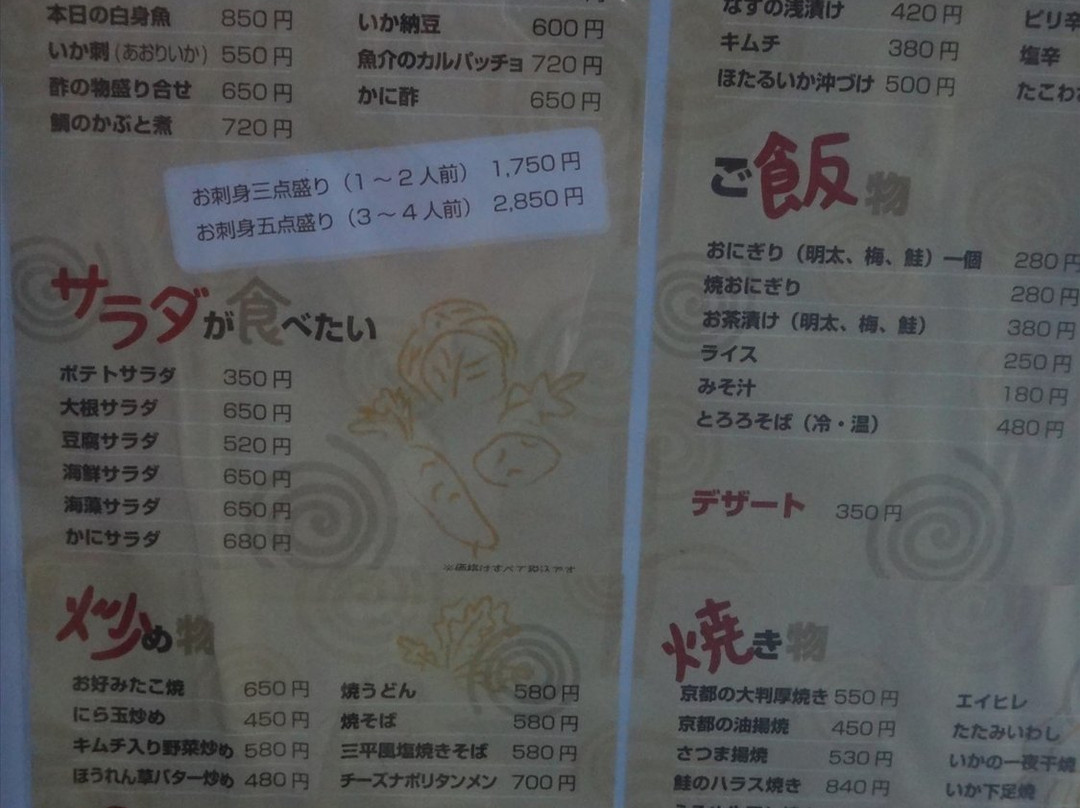 本日の白身魚 850円
いか刺(あおりいか) 550円
酢の物盛り合せ 650円
鯛のかぶと煮 720円
いか納豆 600円
魚介のカルパッチョ 720円
かに酢 650円
お刺身三点盛り（1～2人前） 1,750円
お刺身五点盛り（3～4人前） 2,850円
サラダが食べたい
ポテトサラダ 350円
大根サラダ 650円
豆腐サラダ 520円
海鮮サラダ 650円
海藻サラダ 650円
かにサラダ 680円
※価格はすべて税込です
炒め物
お好みたこ焼 650円
にら玉炒め 450円
キムチ入り野菜炒め 580円
ほうれん草バター炒め 480円
焼うどん 580円
焼そば 580円
三平風塩焼きそば 580円
チーズナポリタンメン 700円
なすの浅漬け 420円
キムチ 380円
ほたるいか沖づけ 500円
ピリ辛
塩辛
たこわ
ご飯物
おにぎり（明太、梅、鮭）一個 280円
焼おにぎり 280円
お茶漬け（明太、梅、鮭） 380円
ライス 250円
みそ汁 180円
とろろそば（冷・温） 480円
デザート 350円
焼き物
京都の大判厚焼き 550円
京都の油揚焼 450円
さつま揚焼 530円
鮭のハラス焼き 840円
エイヒレ
たたみいわし
いかの一夜干焼
いか下足焼